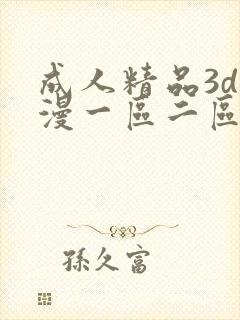 成人精品3d
漫一區二區
孫久富